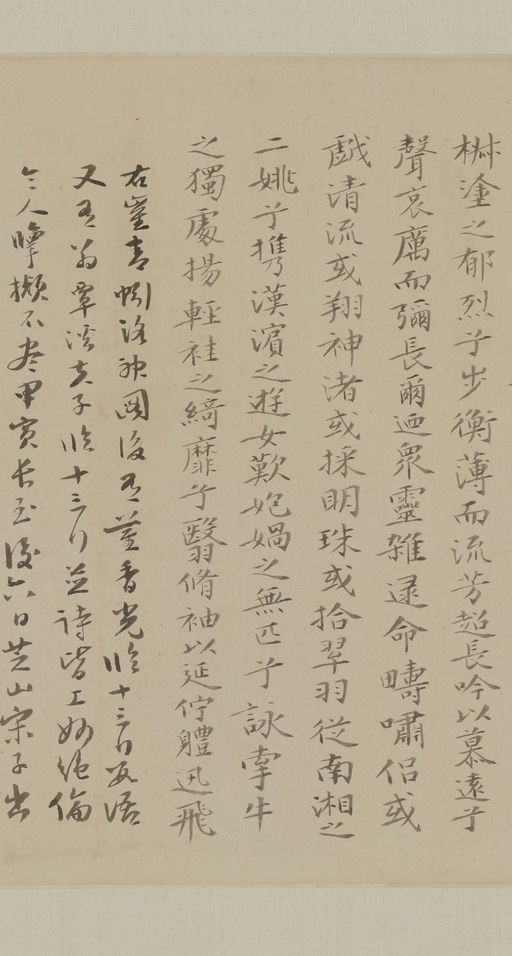 椒塗之郁烈兮步衡薄而流芳超長吟以慕遠兮
聲哀厲而彌長爾迺衆靈雜遝命疇嘯侶或
戲清流或翔神渚或採明珠或拾翠羽從南湘之
二姚兮攜漢濱之遊女歎匏媧之無匹兮詠牽牛
之獨處揚輕袿之綺靡兮翳脩袖以延佇體迅飛
右崔青蚓洛神圖後有董香光臨十三行及語
又有翁覃溪夫子臨十三行並詩皆工妙絕倫
令人瞱擬不盡甲寅長至後六日芝山宋